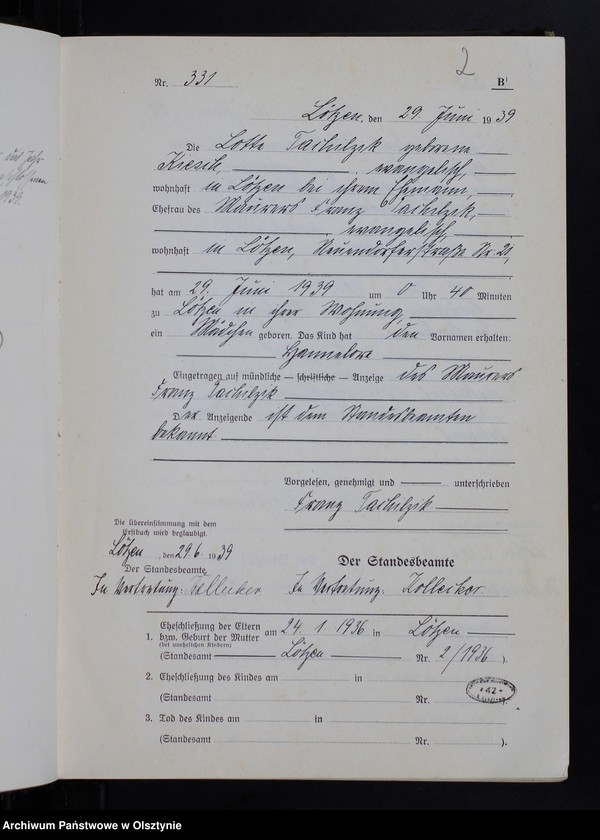 2
Nr. 331
B
Lötzen, den 29 Juni 1939
Die Lotte geborene
evangelisch,
wohnhaft in Lötzen bei ihrem Ehemann,
Ehefrau des Maurers Franz
evangelisch
wohnhaft in Lötzen, Neuendorferstraße Nr. 21,
hat am 29. Juni 1939 um 0 Uhr 40 Minuten
zu Lötzen in ihrer Wohnung,
ein Mädchen geboren. Das Kind hat den Vornamen erhalten:
Hannelore
Eingetragen auf mündliche — schriftliche — Anzeige des Maurers
Franz
Der Anzeigende ist dem Standesbeamten
bekannt.
Vorgelesen, genehmigt und unterschrieben
Franz
Die Übereinstimmung mit dem
Erstbuch wird beglaubigt.
Lötzen, den 29 6 1939
Der Standesbeamte
In Vertretung:
Der Standesbeamte
In Vertretung:
1. Eheschließung der Eltern
bzw. Geburt der Mutter am 24. 1. 1936 in Lötzen
(bei unehelichen Kindern)
(Standesamt Lötzen Nr. 2/1936 ).
2. Eheschließung des Kindes am in
(Standesamt Nr. ).
42
3. Tod des Kindes am in
(Standesamt Nr. ).
Archiwum Państwowe w Olsztynie